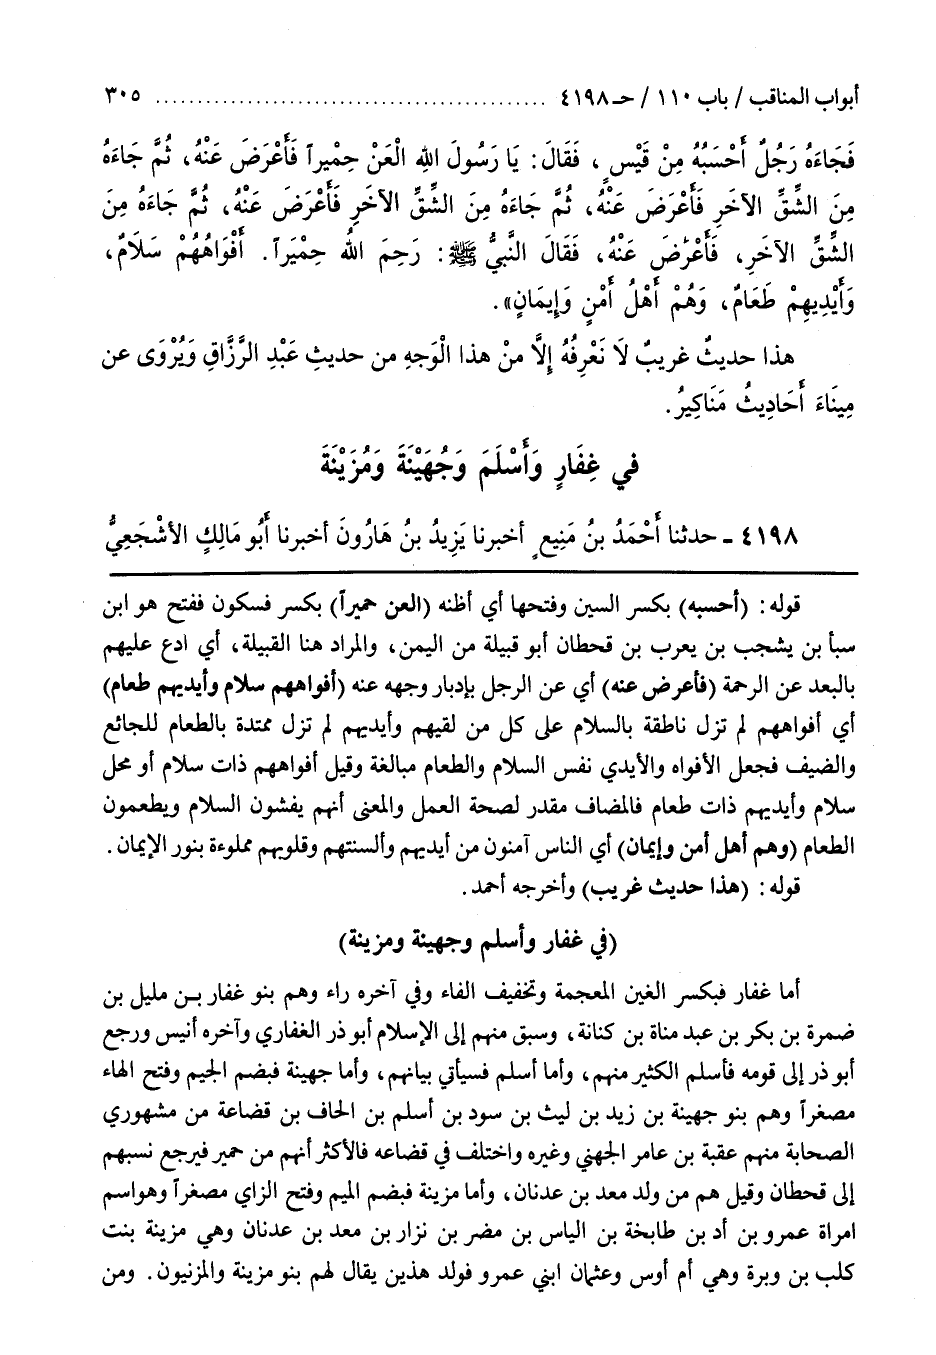 أبواب المناقب / باب ١١٠ / حـ ٤١٩٨ ................................................ ٣٠٥
فَجَاءَهُ رَجُلٌ أَحْسَبُهُ مِنْ قَيْسٍ، فَقَالَ: يَا رَسُولَ اللهِ الْعَنْ حِمْيراً فَأَعْرَضَ عَنْهُ، ثُمَّ جَاءَهُ
مِنَ الشِّقِّ الآخَرِ فَأَعْرَضَ عَنْهُ، ثُمَّ جَاءَهُ مِنَ الشِّقِّ الآخَرِ فَأَعْرَضَ عَنْهُ، ثُمَّ جَاءَهُ مِنَ
الشِّقِّ الآخَرِ، فَأَعْرَضَ عَنْهُ، فَقَالَ النَّبِيُّ ﷺ: رَحِمَ اللهُ حِمْيَراً. أَفْوَاهُهُمْ سَلَامٌ،
وَأَيْدِيهِمْ طَعَامٌ، وَهُمْ أَهْلُ أَمْنٍ وَإِيمَانٍ».
هذا حديثٌ غريبٌ لَا نَعْرِفُهُ إِلَّا منْ هذا الْوَجهِ من حديثِ عَبْدِ الرَّزَّاقِ وَيُرْوَى عن
مِينَاءَ أَحَادِيثُ مَنَاكِيرُ.
في غِفَارٍ وَأَسْلَمَ وَجُهَيْنَةَ وَمُزَيْنَةَ
٤١٩٨ - حدثنا أَحْمَدُ بنُ مَنِيعٍ أخبرنا يَزِيدُ بنُ هَارُونَ أخبرنا أَبُو مَالِكٍ الأشْجَعِيُّ
قوله: (أحسبه) بكسر السين وفتحها أي أظنه (العن حميراً) بكسر فسكون ففتح هو ابن
سبأ بن يشجب بن يعرب بن قحطان أبو قبيلة من اليمن، والمراد هنا القبيلة، أي ادع عليهم
بالبعد عن الرحمة (فأعرض عنه) أي عن الرجل بإدبار وجهه عنه (أفواههم سلام وأيديهم طعام)
أي أفواههم لم تزل ناطقة بالسلام على كل من لقيهم وأيديهم لم تزل ممتدة بالطعام للجائع
والضيف فجعل الأفواه والأيدي نفس السلام والطعام مبالغة وقيل أفواههم ذات سلام أو محل
سلام وأيديهم ذات طعام فالمضاف مقدر لصحة العمل والمعنى أنهم يفشون السلام ويطعمون
الطعام (وهم أهل أمن وإيمان) أي الناس آمنون من أيديهم وألسنتهم وقلوبهم مملوءة بنور الإيمان.
قوله: (هذا حديث غريب) وأخرجه أحمد.
(في غفار وأسلم وجهينة ومزينة)
أما غفار فبكسر الغين المعجمة وتخفيف الفاء وفي آخره راء وهم بنو غفار بـن مليل بن
ضمرة بن بكر بن عبد مناة بن كنانة، وسبق منهم إلى الإسلام أبو ذر الغفاري وآخره أنيس ورجع
أبو ذر إلى قومه فأسلم الكثير منهم، وأما أسلم فسيأتي بيانهم، وأما جهينة فبضم الجيم وفتح الهاء
مصغراً وهم بنو جهينة بن زيد بن ليث بن سود بن أسلم بن الحاف بن قضاعة من مشهوري
الصحابة منهم عقبة بن عامر الجهني وغيره واختلف في قضاعه فالأكثر أنهم من حمير فيرجع نسبهم
إلى قحطان وقيل هم من ولد معد بن عدنان، وأما مزينة فبضم الميم وفتح الزاي مصغراً وهواسم
امراة عمرو بن أد بن طابخة بن الياس بن مضر بن نزار بن معد بن عدنان وهي مزينة بنت
كلب بن وبرة وهي أم أوس وعثمان ابني عمرو فولد هذين يقال لهم بنو مزينة والمزنيون. ومن